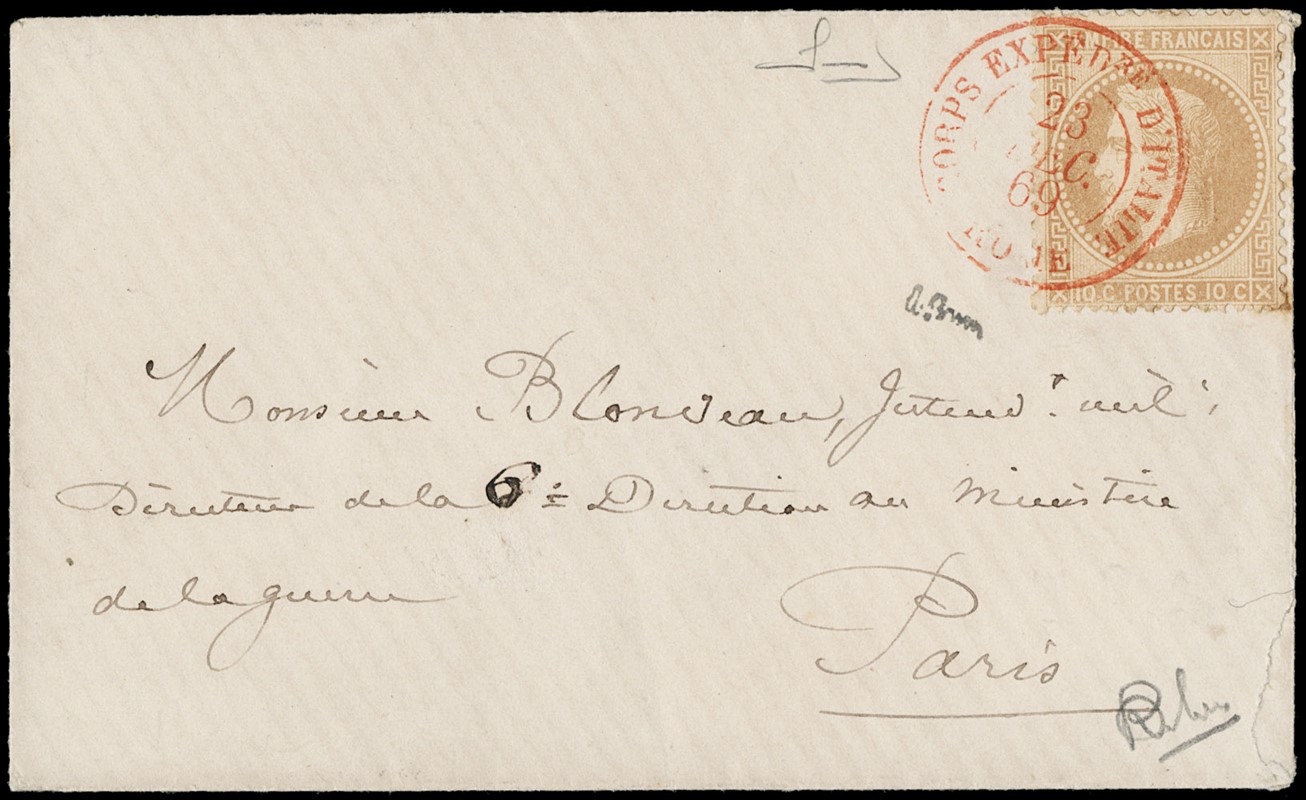 CORPS EXPÉDRE D'ITALIE
23
DEC.
69
ROME
EMPIRE FRANÇAIS
10 C POSTES 10 C
A. Brun
Monsieur Blondeau, Intendt milre
Directeur de la 6e Direction au Ministère
de la guerre
Paris